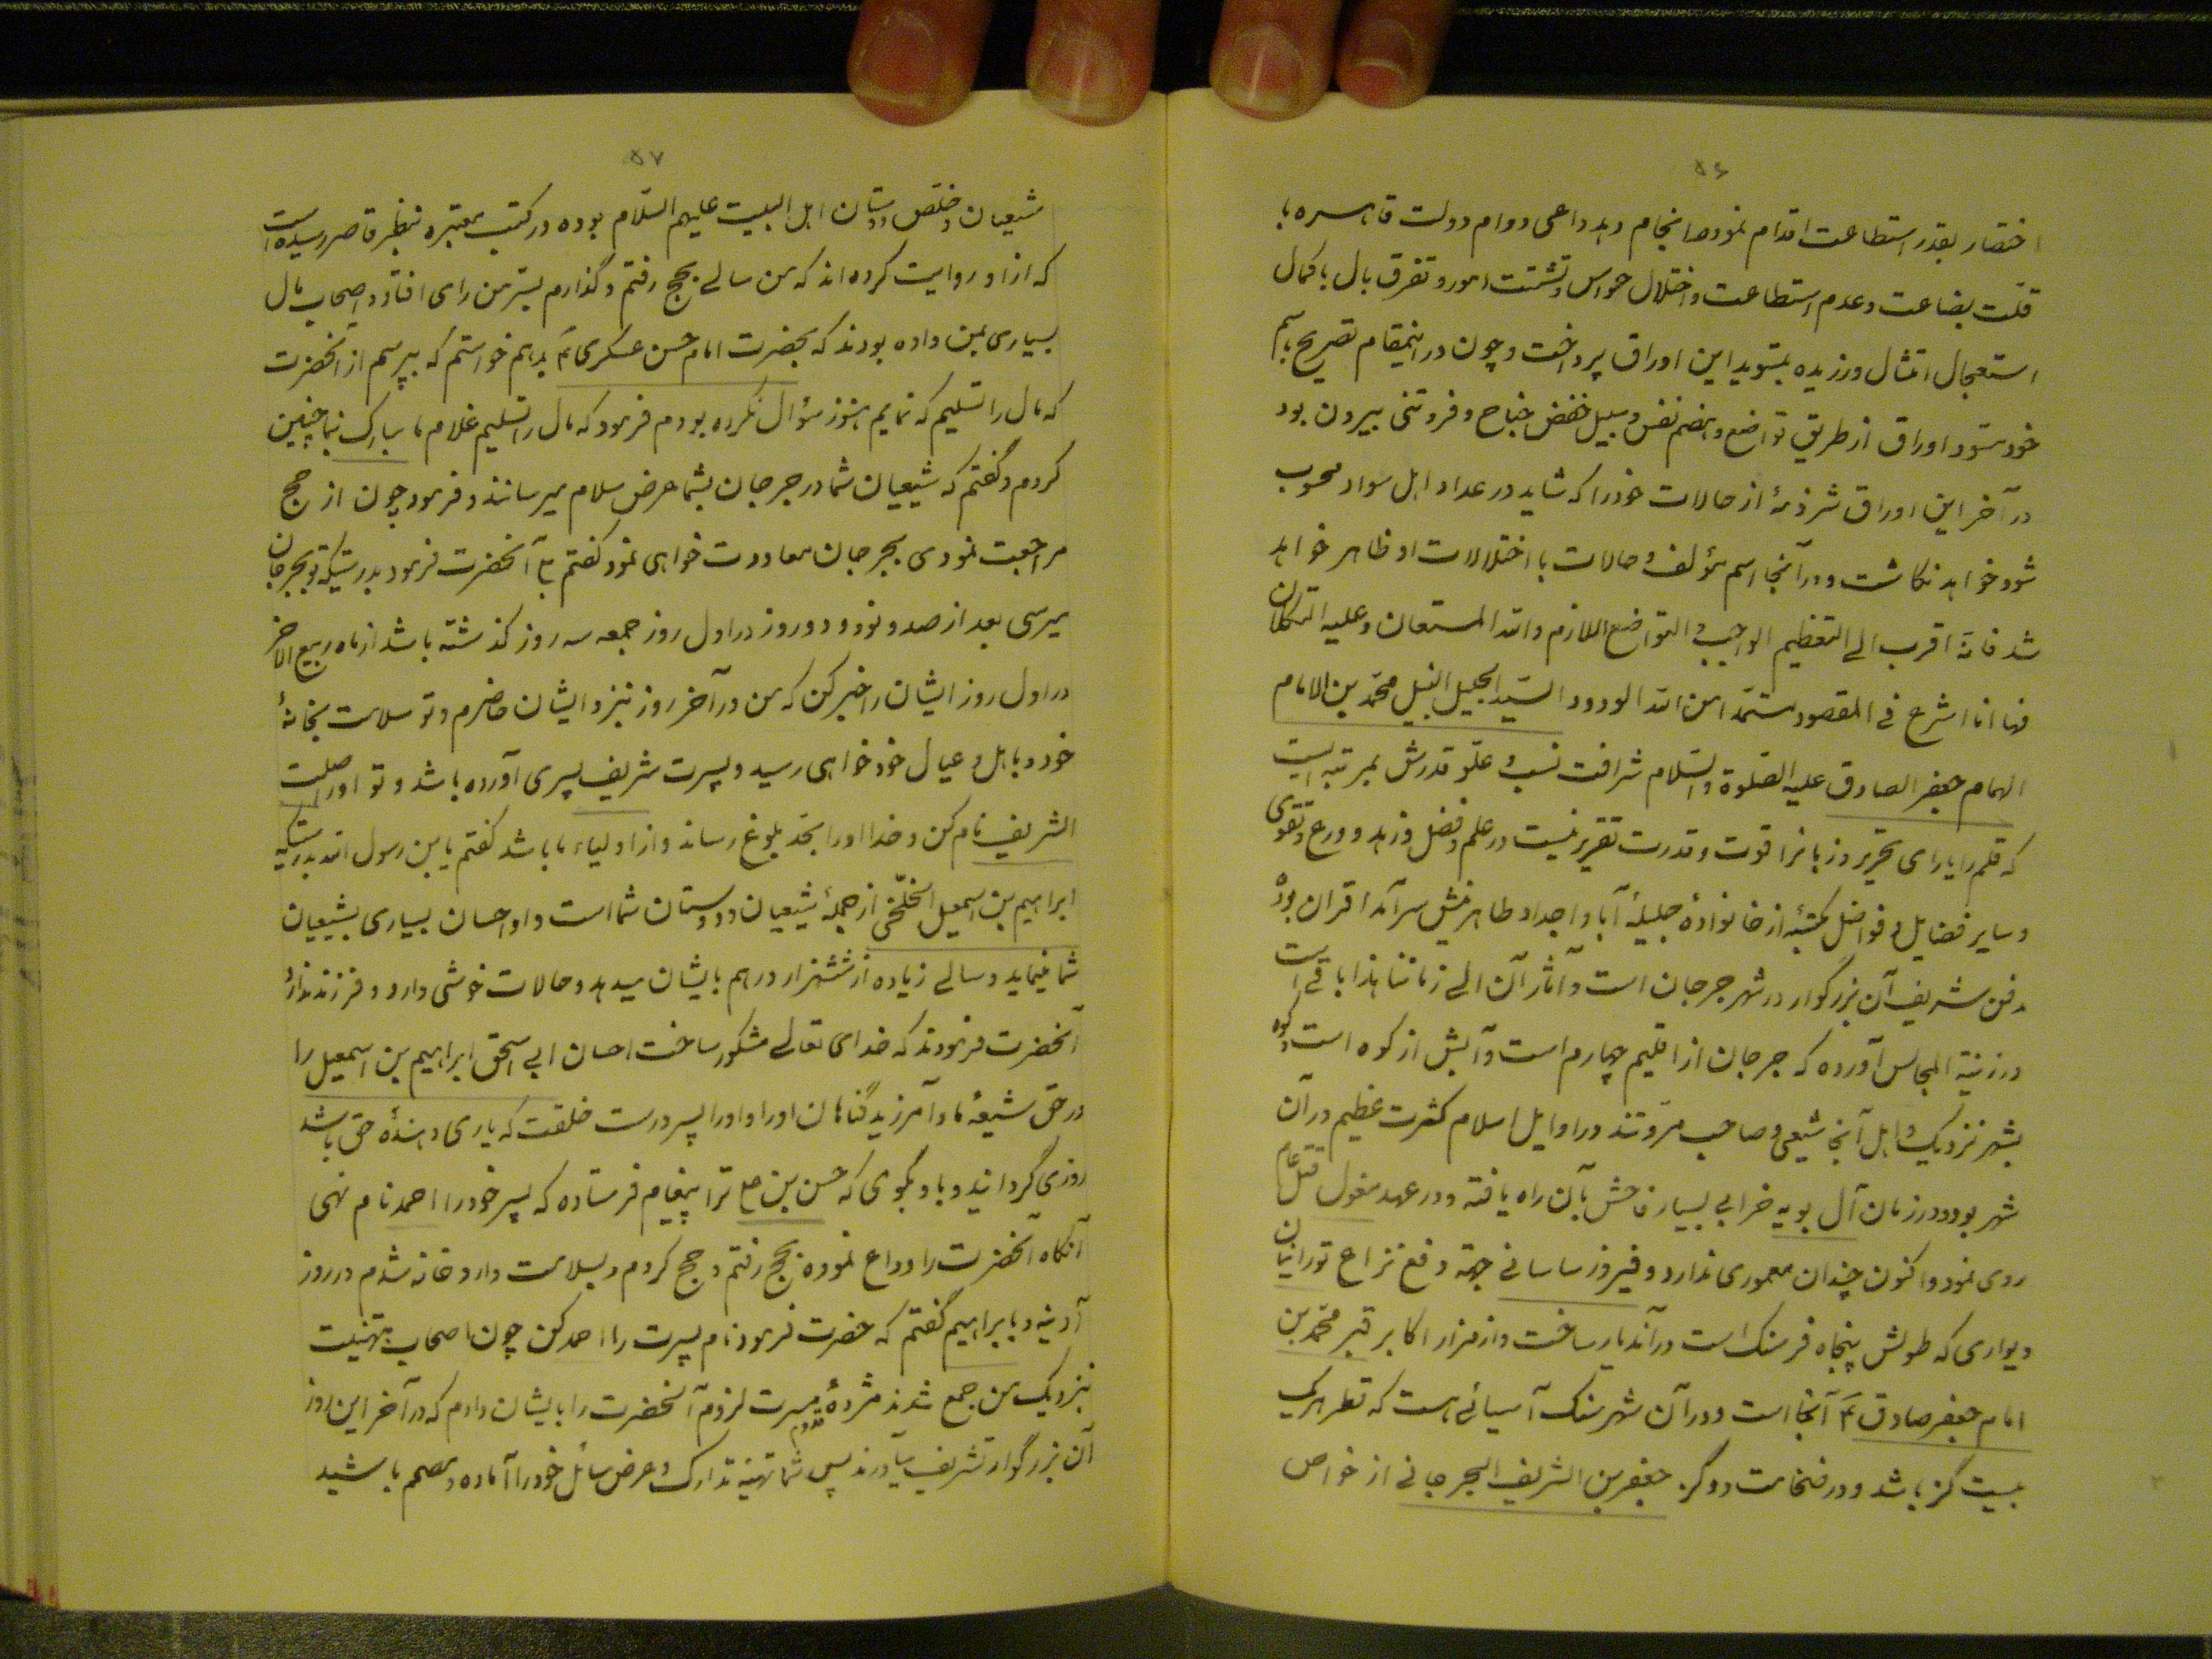 ۵۶
اختصار بقدر استطاعت اقدام نموده انجام دهد داعی دوام دولت قاهره با
قلّت بضاعت و عدم استطاعت و اختلال حواس و تشتت امور و تفرق بال با کمال
استعجال امتثال ورزیده بتسوید این اوراق پرداخت و چون در اینمقام تصریح باسم
خود مسوّد اوراق از طریق تواضع و هضم نفس و سبیل خفض جناح و فروتنی بیرون بود
در آخر این اوراق شرذمهٔ از حالات خود را که شاید در عداد اهل سواد محسوب
شود خواهد نگاشت و در آنجا اسم مؤلف و حالات با اختلالات او ظاهر خواهد
شد فانه اقرب الی التعظیم الواجب و التواضع اللازم و الله المستعان و علیه التکلان
فها انا اشرع فی المقصود مستمدا من الله الودود السّید الجلیل النبیل محمّد بن الامام
الهمام جعفر الصادق علیه الصّلوة و السّلام شرافت نسب و علّو قدرش بمرتبه ایست
که قلم را یارای تحریر و زبانرا قوت و قدرت تقریر نیست در علم و فضل و زهد و ورع و تقوی
و سایر فضایل و فواضل مکتسبه از خانوادهٔ جلیلهٔ آبا و اجداد طاهرینش سرآمد اقران بوده
مدفن شریف آن بزرگوار در شهر جرجان است و آثار آن الی زماننا هذا باقی است
در زینة المجالس آورده که جرجان از اقلیم چهارم است و آبش از کوه است و کوه
بشهر نزدیک و اهل آنجا شیعی و صاحب مروّتند در اوایل اسلام کثرت عظیم در آن
شهر بود و در زمان آل بویه خرابی بسیار فاحش بآن راه یافته و در عهد مغول قتل عام
روی نمود و اکنون چندان معموری ندارد و فیروز ساسانی جهة دفع نزاع تورانیان
دیواری که طولش پنجاه فرسنک است در آندیار ساخت و از مزار اکابر قبر محمّد بن
امام جعفر صادق ع آنجا است و در آن شهر سنک آسیائی هست که قطر هریک
بیست گز باشد و در ضخامت دو گز جعفر بن الشریف الجرجانی از خواص
۵۷
شیعیان و خلّص دوستان اهل البیت علیهم السّلام بوده در کتب معتبره بنظر قاصر رسیده است
که از او روایت کرده اند که من سالی بحج رفتم و گذارم بسرّ من رای افتاد و اصحاب مال
بسیاری بمن داده بودند که بحضرت امام حسن عسکری ع بدهم خواستم که بپرسم از آنحضرت
که مال را تسلیم که نمایم هنوز سؤال نکرده بودم فرمود که مال را تسلیم غلام ما مبارک نما چنین
کردم و گفتم که شیعیان شما در جرجان بشما عرض سلام میرسانند و فرمود چون از حج
مراجعت نمودی بجرجان معاودت خواهی نمود گفتم بلی آنحضرت فرمود بدرستیکه تو بجرجان
میرسی بعد از صد و نود و دو روز در اول روز جمعه سه روز گذشته باشد از ماه ربیع الاخر
در اول روز ایشان را خبر کن که من در آخر روز نیز نزد ایشان حاضرم و تو سلامت بخانهٔ
خود و باهل و عیال خود خواهی رسید و پسرت شریف پسری آورده باشد و تو او را صلت
الشریف نام کن و خدا او را بحدّ بلوغ رساند و از اولیاء ما باشد گفتم یابن رسول الله بدرستیکه
ابراهیم بن اسمعیل الخلنجی از جملهٔ شیعیان و دوستان شما است و او احسان بسیاری بشیعیان
شما مینماید و سالی زیاده از ششهزار درهم بایشان میدهد و حالات خوشی دارد و فرزند ندارد
آنحضرت فرمودند که خدای تعالی مشکور ساخت احسان ابی اسحق ابراهیم بن اسمعیل را
در حق شیعهٔ ما و آمرزید گناهان او را و او را پسر درست خلقت که یاری دهندهٔ حق باشد
روزی گرداند و باو بگوی که حسن بن علی ترا پیغام فرستاده که پسر خود را احمد نام نهی
آنکاه آنحضرت را وداع نموده بحج رفتم و حج کردم و بسلامت وارد خانه شدم در روز
آدینه و بابراهیم گفتم که حضرت فرمود نام پسرت را احمد کن چون اصحاب بتهنیت
نزدیک من جمع شدند مژدهٔ مسرت لزوم قدوم آنحضرت را بایشان دادم که در آخر این روز
آن بزرگوار تشریف میآورند پس شما تهیّه تدارک و عرض مسائل خود را آماده و مصمم باشید